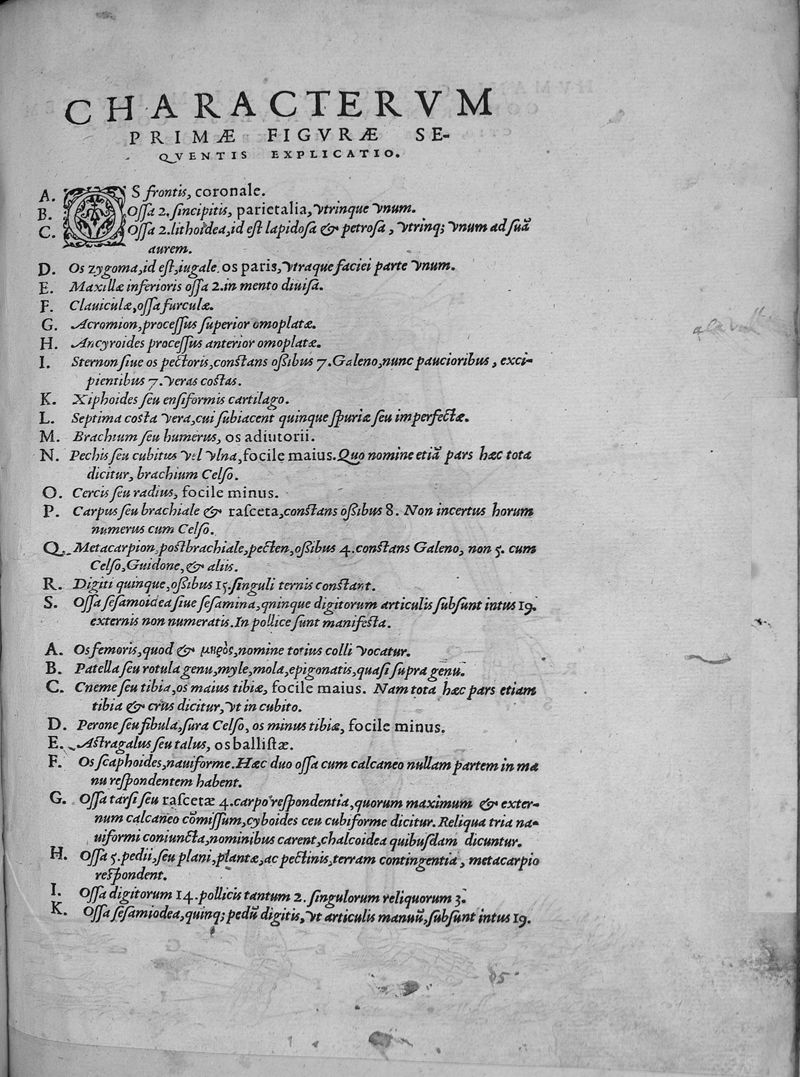 CHARACTERVM
PRIMÆ FIGVRÆ SE-
QVENTIS EXPLICATIO.
A. OS frontis, coronale.
B. Ossa 2. sincipitis, parietalia, vtrinque vnum.
C. Ossa 2. lithoidea, id est lapidosa & petrosa, vtrinq; vnum ad suã
aurem.
D. Os zygoma, id est, iugale. os paris, vtraque faciei parte vnum.
E. Maxillæ inferioris ossa 2. in mento diuisa.
F. Clauiculæ, ossa furculæ.
G. Acromion, processus superior omoplatæ.
H. Ancyroides processus anterior omoplatæ.
I. Sternon siue os pectoris, constans ossibus 7. Galeno, nunc paucioribus, exci-
pientibus 7. veras costas.
K. Xiphoides seu ensiformis cartilago.
L. Septima costa vera, cui subiacent quinque spuriæ seu imperfectæ.
M. Brachium seu humerus, os adiutorii.
N. Pechis seu cubitus vel vlna, focile maius. Quo nomine etiã pars hæc tota
dicitur, brachium Celso.
O. Cercis seu radius, focile minus.
P. Carpus seu brachiale & rasceta, constans ossibus 8. Non incertus horum
numerus cum Celso.
Q. Metacarpion, postbrachiale, pecten, ossibus 4. constans Galeno, non 5. cum
Celso, Guidone, & aliis.
R. Digiti quinque, ossibus 15. singuli ternis constant.
S. Ossa sesamoidea siue sesamina, qninque digitorum articulis subsunt intus 19.
externis non numeratis. In pollice sunt manifesta.
A. Os femoris, quod & μηρὸς, nomine totius colli vocatur.
B. Patella seu rotula genu, myle, mola, epigonatis, quasi supra genu.
C. Cneme seu tibia, os maius tibiæ, focile maius. Nam tota hæc pars etiam
tibia & crus dicitur, vt in cubito.
D. Perone seu fibula, sura Celso, os minus tibiæ, focile minus.
E. Astragalus seu talus, os ballistæ.
F. Os scaphoides, nauiforme. Hæc duo ossa cum calcaneo nullam partem in ma
nu respondentem habent.
G. Ossa tarsi seu rascetæ 4. carpo respondentia, quorum maximum & exter-
num calcaneo cõmissum, cyboides ceu cubiforme dicitur. Reliqua tria na-
uiformi coniuncta, nominibus carent, chalcoidea quibusdam dicuntur.
H. Ossa 5. pedii, seu plani, plantæ, ac pectinis, terram contingentia, metacarpio
respondent.
I. Ossa digitorum 14. pollicis tantum 2. singulorum reliquorum 3.
K. Ossa sesamiodea, quinq; pedũ digitis, vt articulis manuũ, subsunt intus 19.